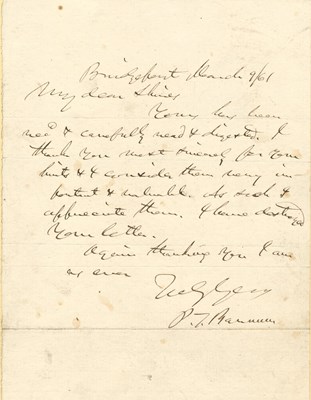 Bridgeport March 9/61
My dear
Yours has been
rec'd & carefully read & digested. I
thank you most sincerely for your
hints & consider them very im-
portant & valuable. As such I
appreciate them. I have destroyed
your letter.
Again thanking you I am
as ever
P. T. Barnum